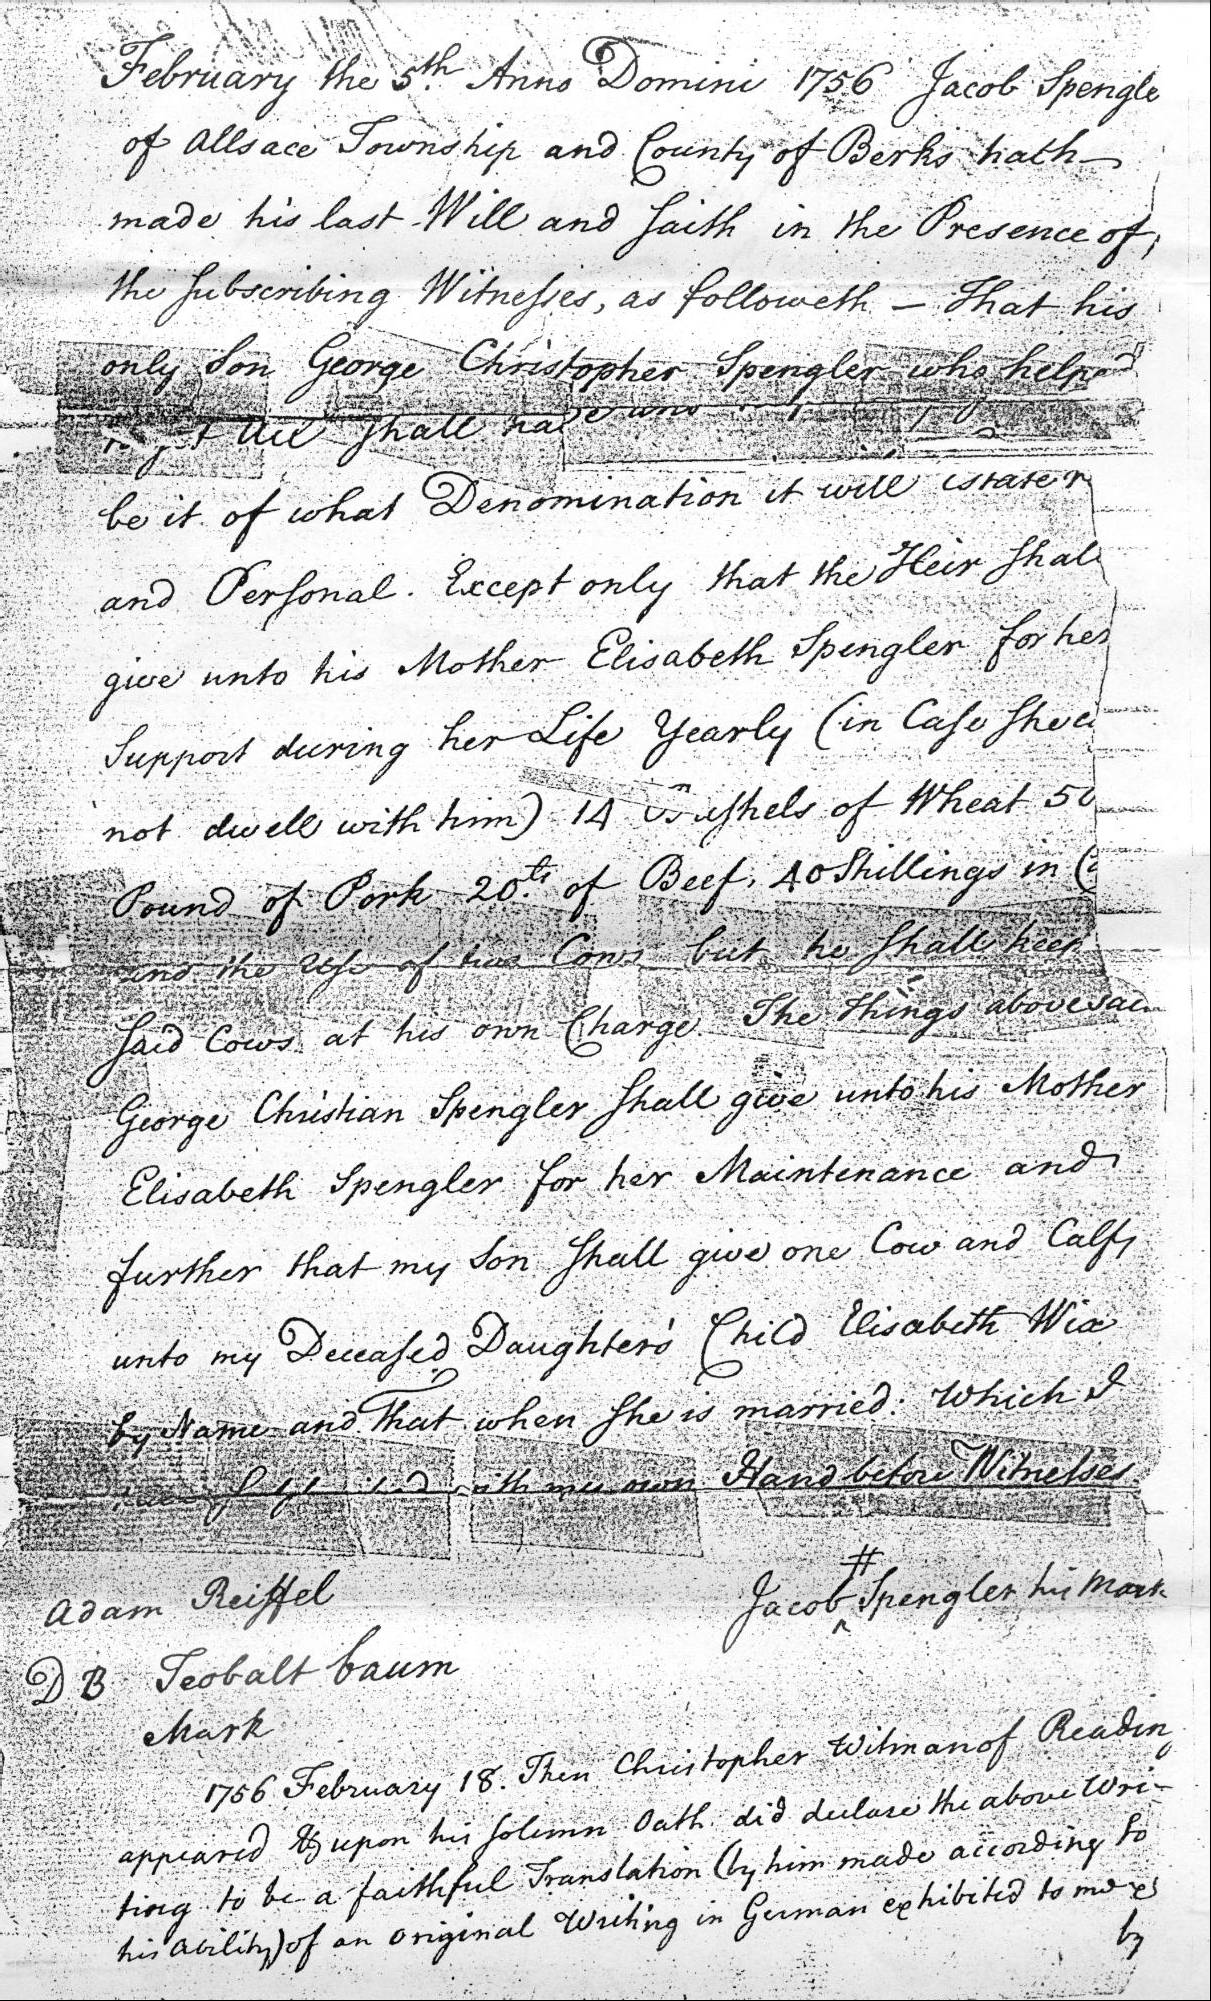 February the 5th. Anno Domini 1756 Jacob Spengle
of Allsace Township and County of Berks hath
made his last Will and Saith in the Presence of
the Subscribing Witnesses, as followeth — That his
only Son George Christopher Spengler who helped
get all shall have
be it of what Denomination it will
and Personal. Except only that the Heir Shal
give unto his Mother Elisabeth Spengler for her
Support during her Life Yearly (in Case She
not dwell with him) 14 Bushels of Wheat 50
Pound of Pork 20ts. of Beef, 40 Shillings in
and the Use of two Cows but he Shall keep
Said Cows at his own Charge. The things abovesaid
George Christian Spengler Shall give unto his Mother
Elisabeth Spengler for her Maintenance and
further that my Son Shall give one Cow and Calf
unto my Deceased Daughter's Child Elisabeth Wix
by Name and That when She is married: Which I
with my own Hand before Witnesses
#
Adam Reiffel Jacob ^ Spengler his Mark
D B Teobalt baum
Mark
1756 February 18. Then Christopher Witman of Readin
appeared & upon his Solemn Oath did declare the above Wri-
ting to be a faithful Translation (by him made according to
his ability) of an original Writing in German exhibited to me
by